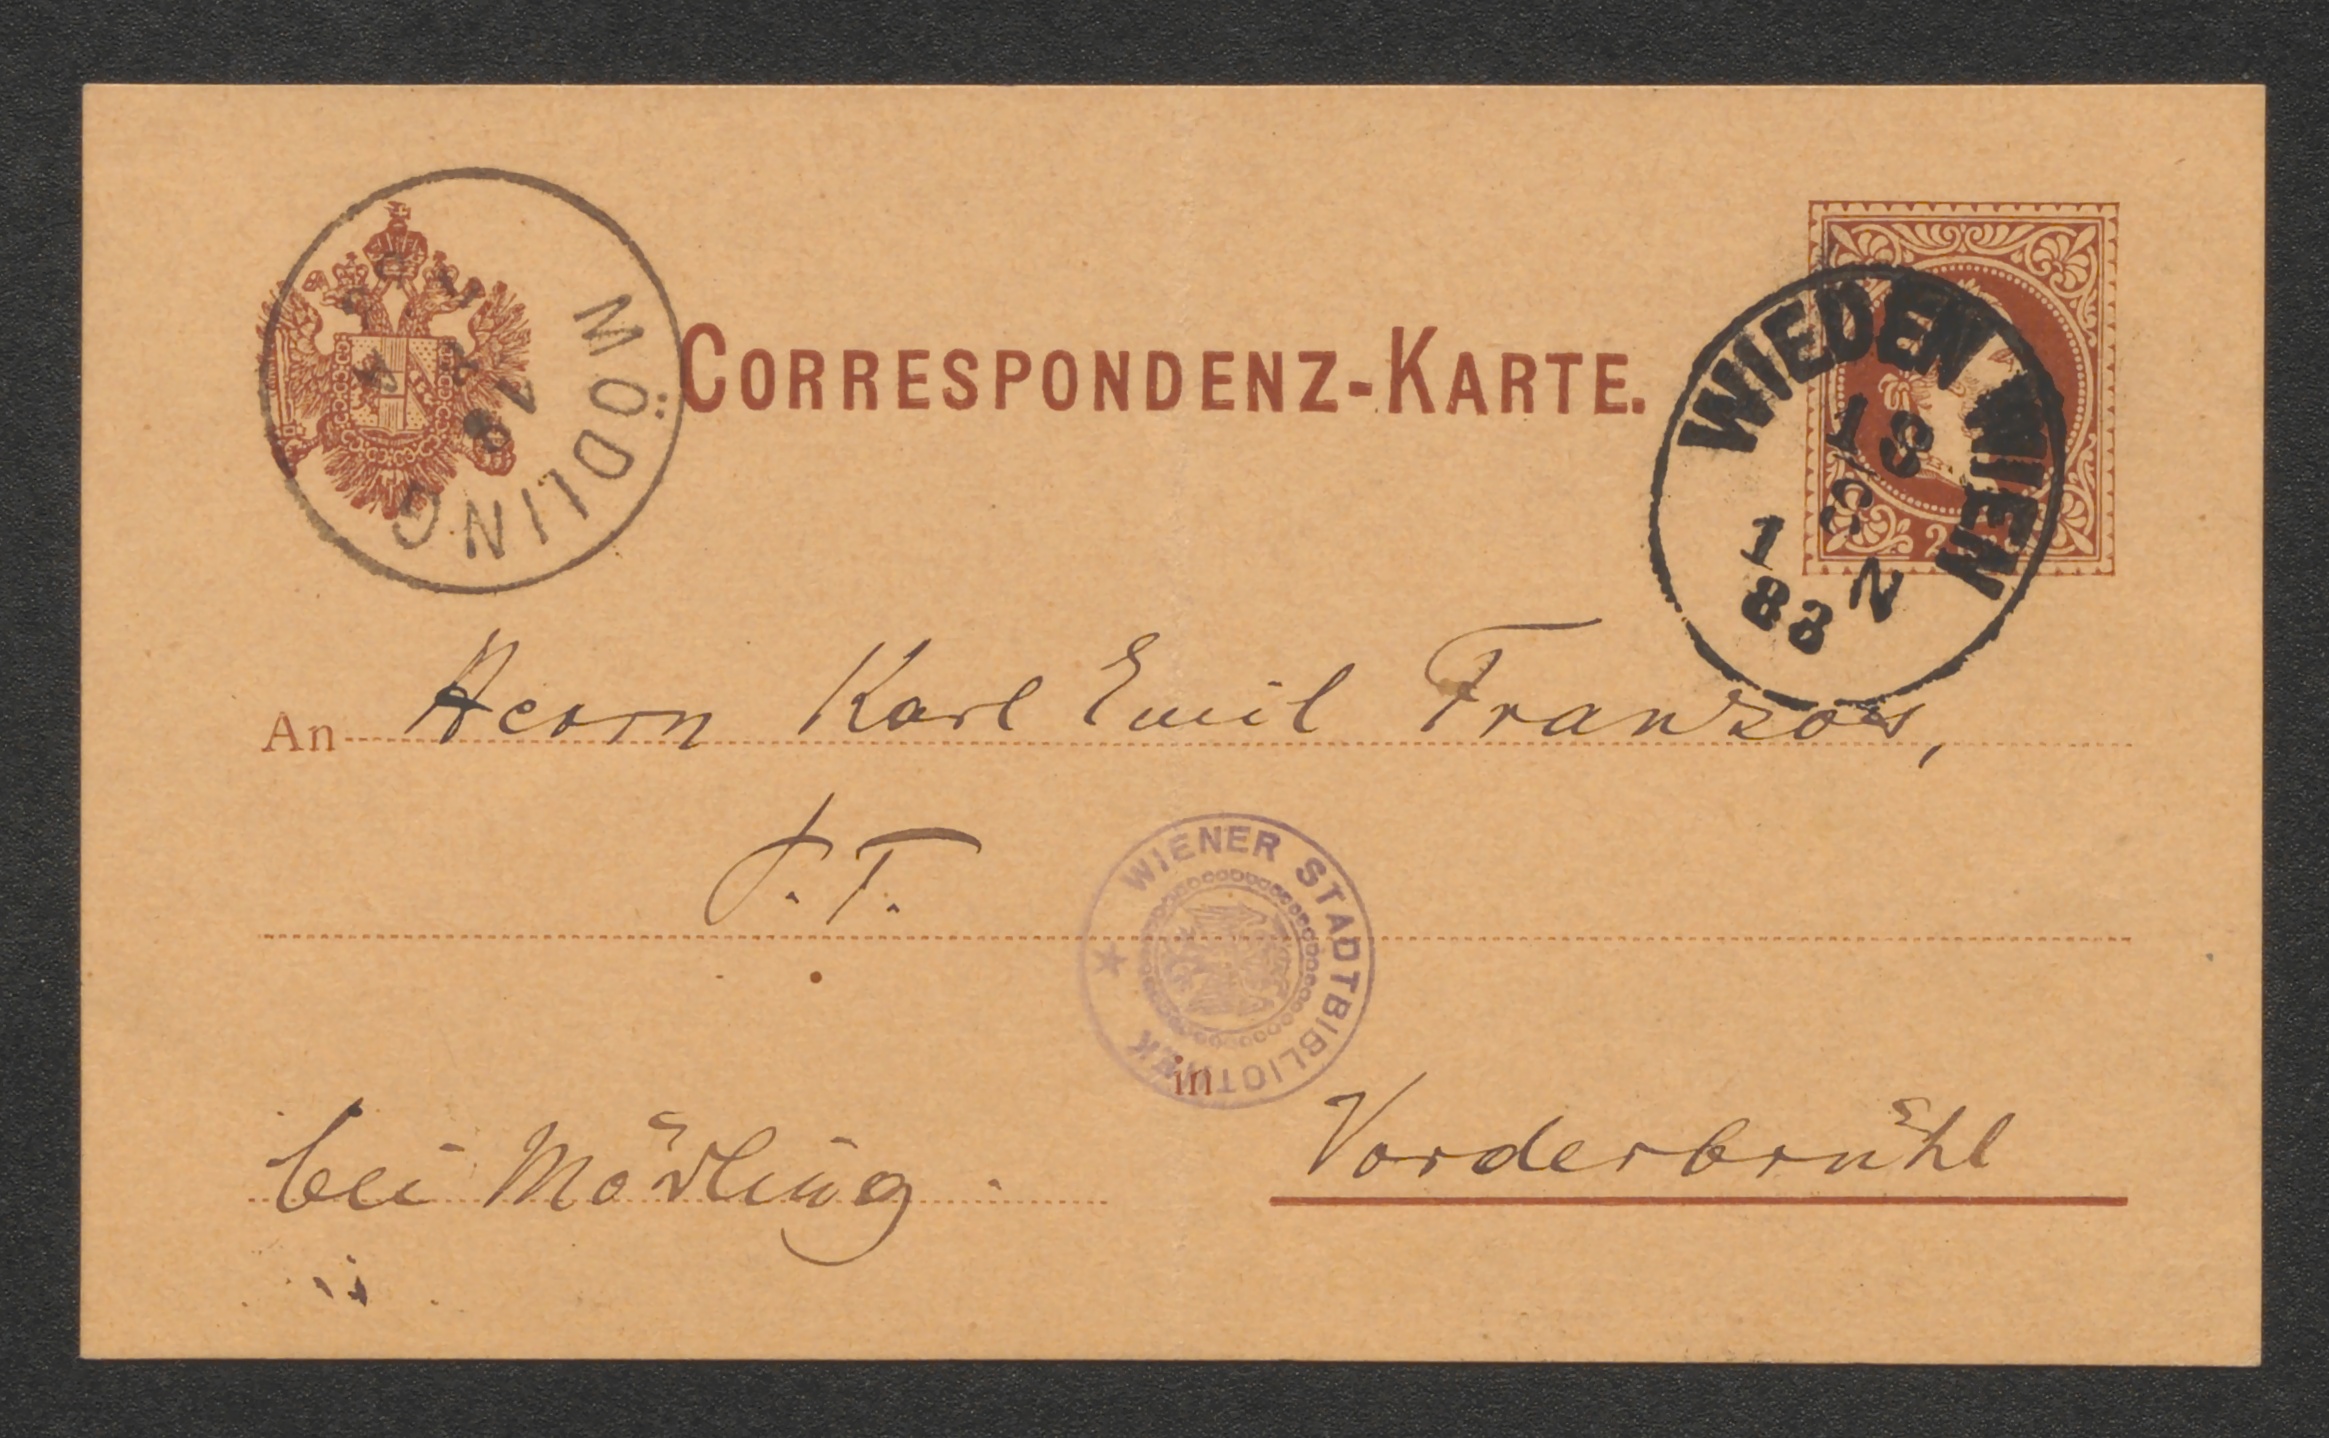 MÖDLING
CORRESPONDENZ-KARTE.
WIEDEN WIEN
18
8
1 N
83
An Herrn Karl Emil Franzos,
P.T.
WIENER STADTBIBLIOTHEK
in Vorderbrühl
bei Mödling.